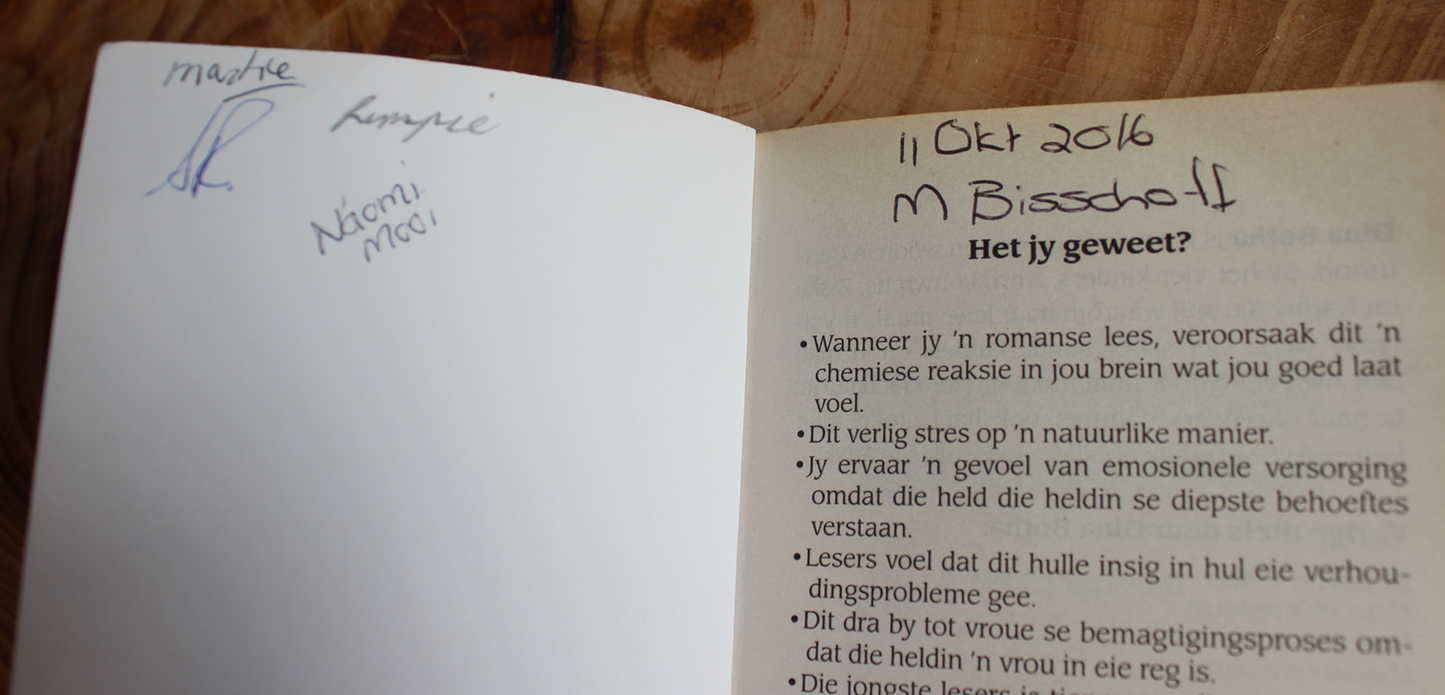 martie
Lempie
SR.
Naomi
Mooi
11 Okt 2016
M Bisschoff
Het jy geweet?
• Wanneer jy 'n romanse lees, veroorsaak dit 'n
chemiese reaksie in jou brein wat jou goed laat
voel.
• Dit verlig stres op 'n natuurlike manier.
• Jy ervaar 'n gevoel van emosionele versorging
omdat die held die heldin se diepste behoeftes
verstaan.
• Lesers voel dat dit hulle insig in hul eie verhou-
dingsprobleme gee.
• Dit dra by tot vroue se bemagtigingsproses om-
dat die heldin 'n vrou in eie reg is.
• Die jongste lesers is